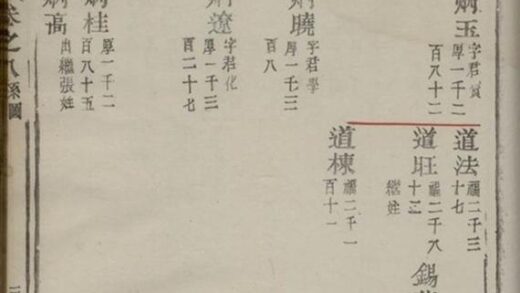 炳玉 字君實 厚一千二百八十二
炳曉 字君學 厚一千三百八
炳遼 字君化 厚一千三百二十七
炳桂 厚一千二百八十五
炳高 出繼張姓
卷之八系圖
道法 福二千三十七
道旺 福二千八十三 繼姓
道棟 福二千一百十一
錫